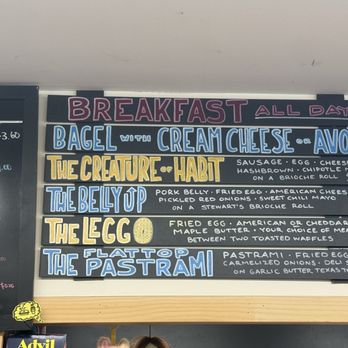 BREAKFAST ALL DAY
BAGEL WITH CREAM CHEESE OR AVO
THE CREATURE OF HABIT
SAUSAGE · EGG · CHEESE
HASHBROWN · CHIPOTLE M
ON A BRIOCHE ROLL
THE BELLY UP
PORK BELLY · FRIED EGG · AMERICAN CHEES
PICKLED RED ONIONS · SWEET CHILI MAYO
ON A STEWART'S BRIOCHE ROLL
THE LEGGO
FRIED EGG · AMERICAN OR CHEDDAR
MAPLE BUTTER · YOUR CHOICE OF MEA
BETWEEN TWO TOASTED WAFFLES
THE FLAT TOP PASTRAMI
PASTRAMI · FRIED EGG
CARMELIZED ONIONS · DELI S
ON GARLIC BUTTER, TEXAS TO
3.60
Advil